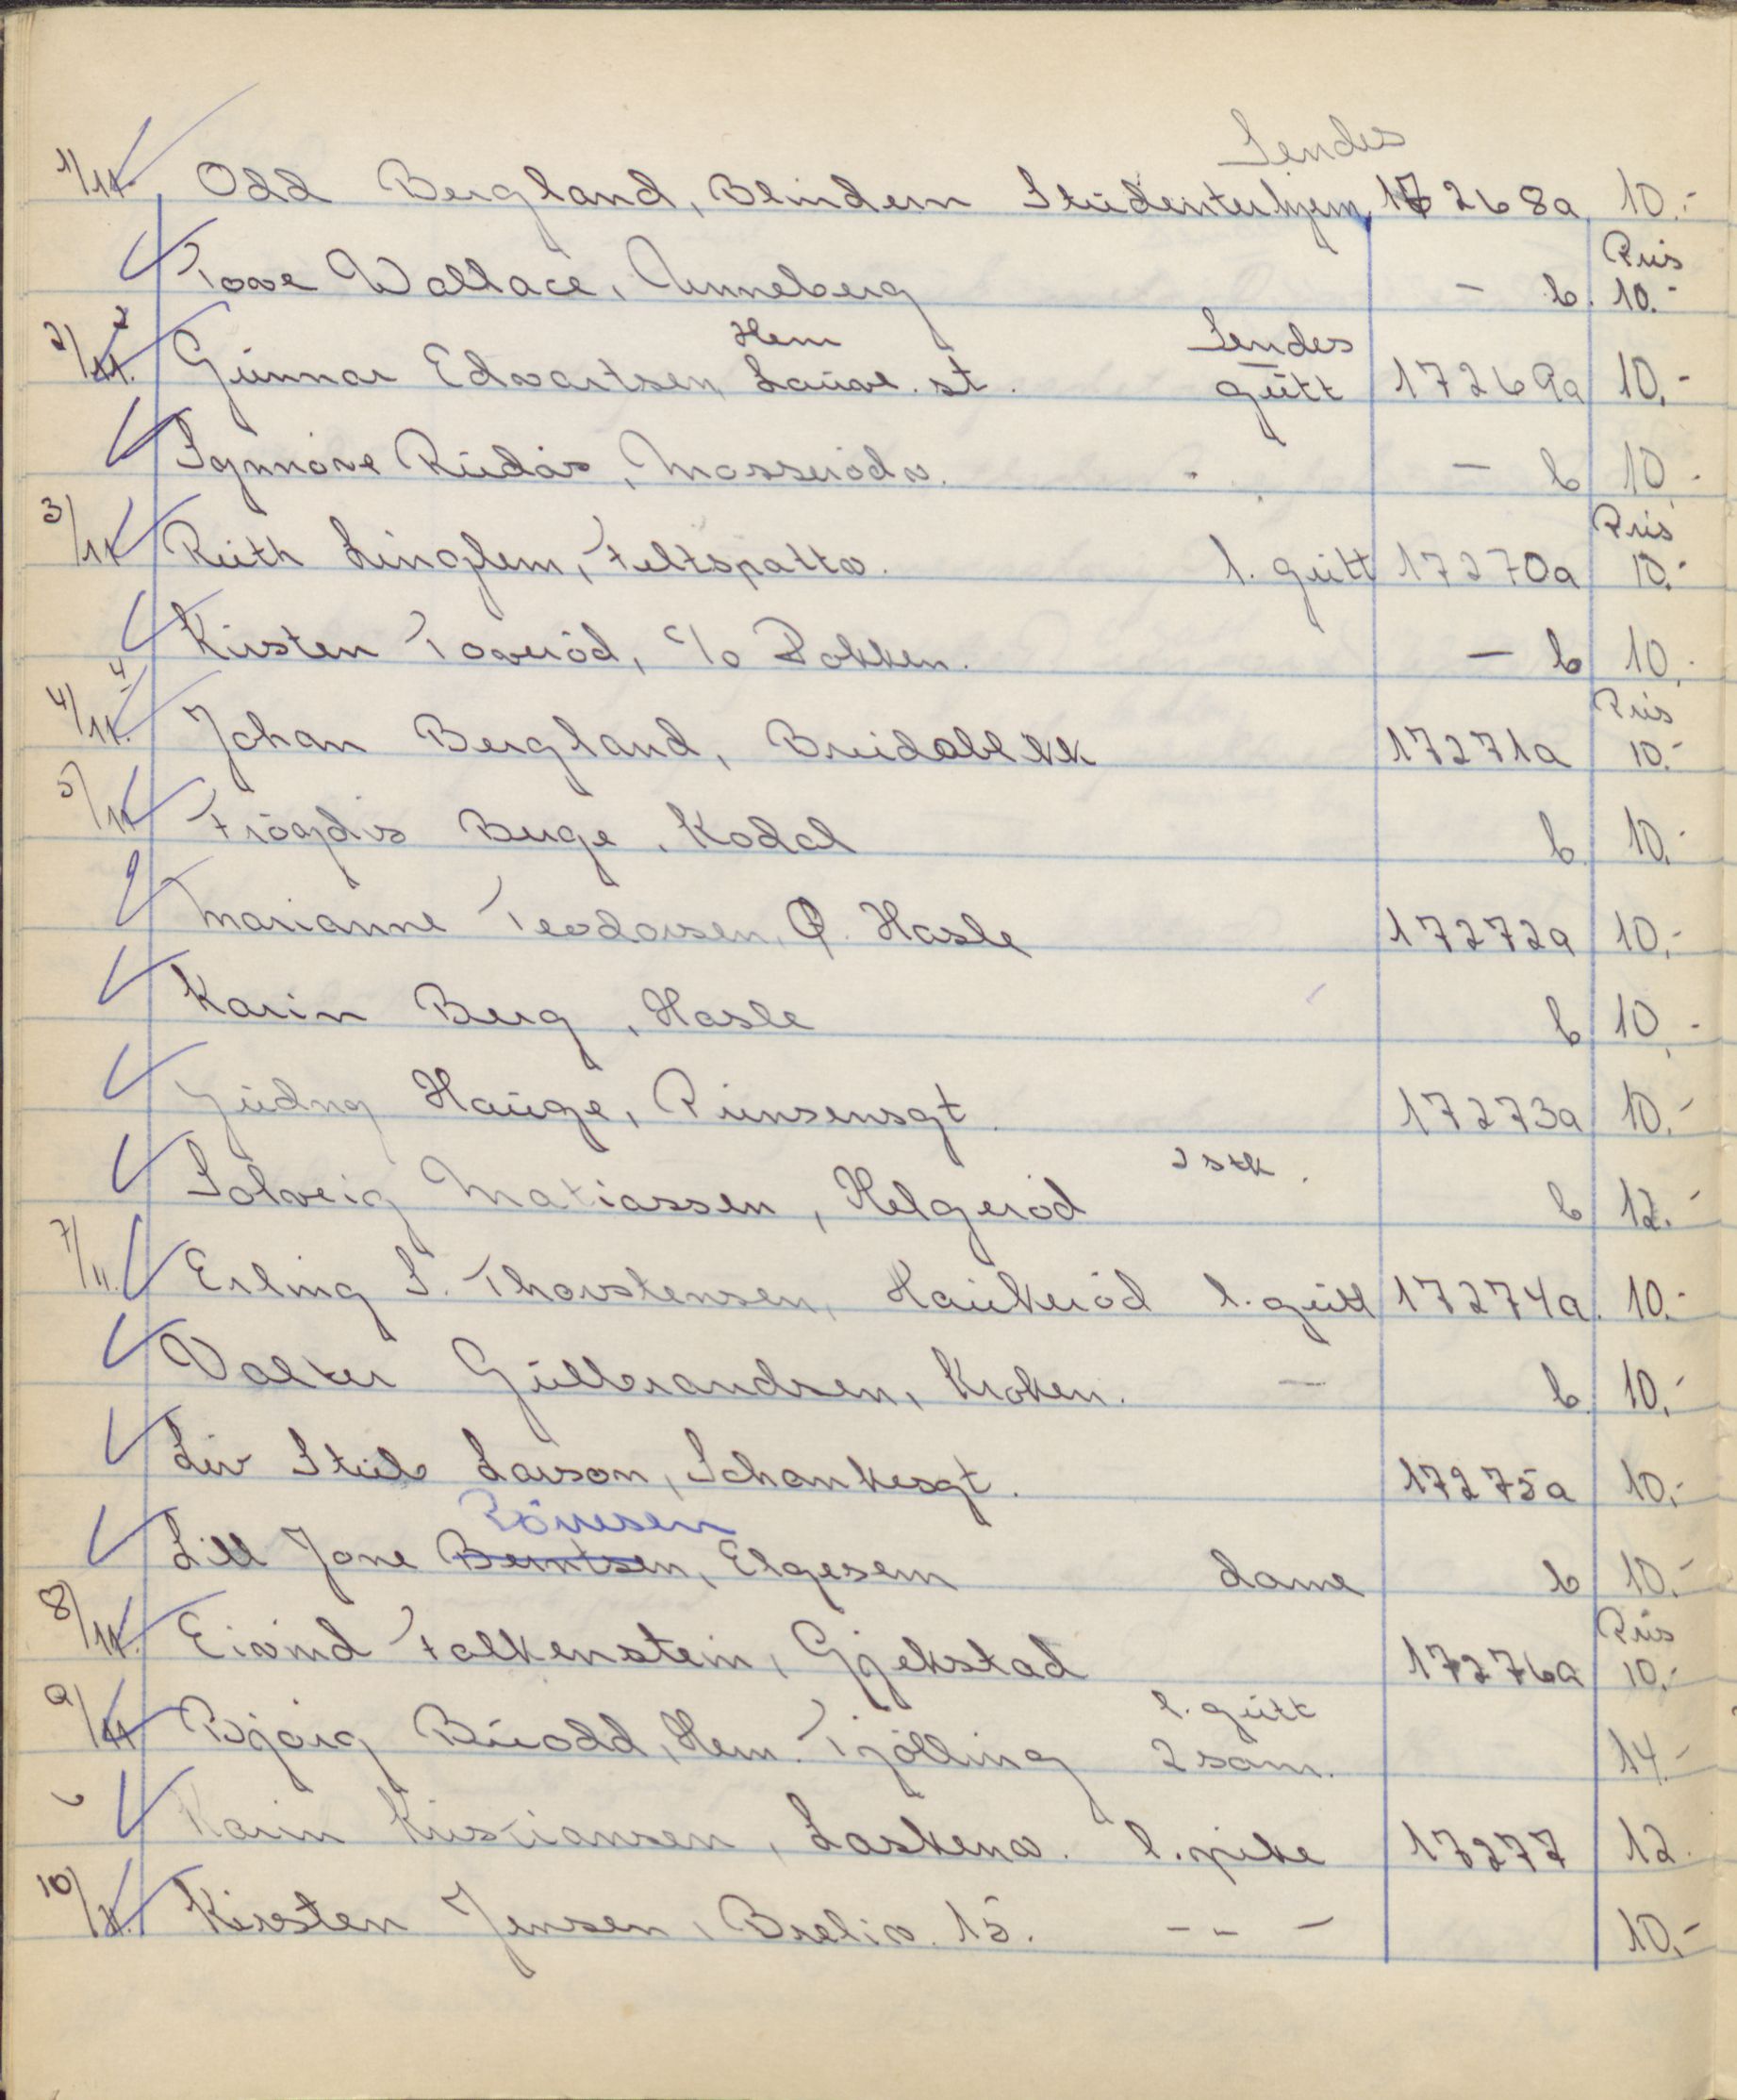 Sendes
1/11. Odd Bergland, Blindern Studenterhjem, 17268a 10.-
Tove Wallace, Anneberg - b. Pris 10.-
2/11. Gunnar Edvartsen, Hem Lauve. st. Sendes gutt 17269a 10.-
Synnöve Rudås, Mosserödv. - b 10.-
3/11 Ruth Linglem, Feltspattv. l. gutt 17270a Pris 10.-
Kirsten Toveröd, c/o Bakken. - b 10.-
4/11. Johan Bergland, Breidablikk 17271a Pris 10.-
5/11 Fröydis Berge, Kodal b. 10.-
Marianne Teodorsen, Ø. Hasle 17272a 10.-
Karin Berg, Hasle b 10.-
Gudny Hauge, Prinsensgt. 17273a 10.-
Solveig Matiassen, Helgeröd 2 stk. b 12.-
7/11. Erling S. Thorstensen, Haukeröd l. gutt 17274a. 10.-
Valter Gulbrandsen, Kroken. - b. 10.-
Liv Stub Larson, Schankesgt. 17275a 10.-
Rörvesen
Lill Jane Berntsen, Elgesem dame b 10.-
8/11. Eivind Falkenstein, Gjekstad 17276a Pris 10.-
9/11 Bjørg Buodd, Hem. Tjölling l. gutt 2 sam. 14.-
Karin Kristiansen, Laskenv. l. pike 17277 12.
10/11. Kirsten Jensen, Breliv. 15. - - - 10.-